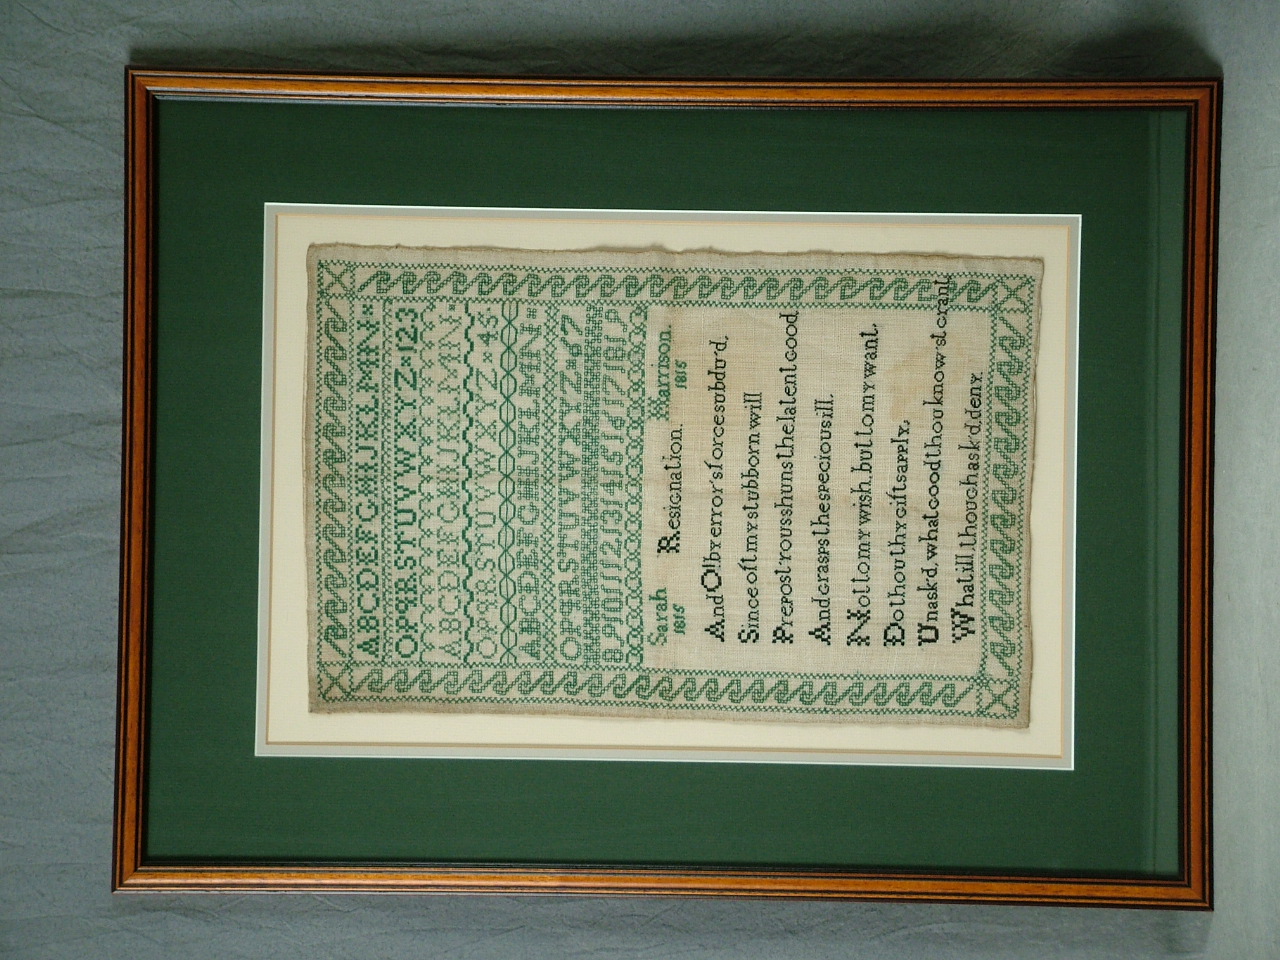 ABCDEFGHIJKLMN
OPQRSTUVWXYZ 123
ABCDEFGHIJKLMN
OPQRSTUVWXYZ 45
ABCDEFGHIJKLMN
OPQRSTUVWXYZ 67
8 9 10 11 12 13 14 15 16 17 18 19
Sarah Harrison.
1815 Resignation. 1815
And O! by error's force subdu'd.
Since oft my stubborn will
Prepost'rous shuns the latent Good
And Grasps the specious ill.
Not to my wish, but to my want,
Do thou thy Gifts apply,
Unask'd, what Good thou know'st Grant
What ill, though ask'd, deny.